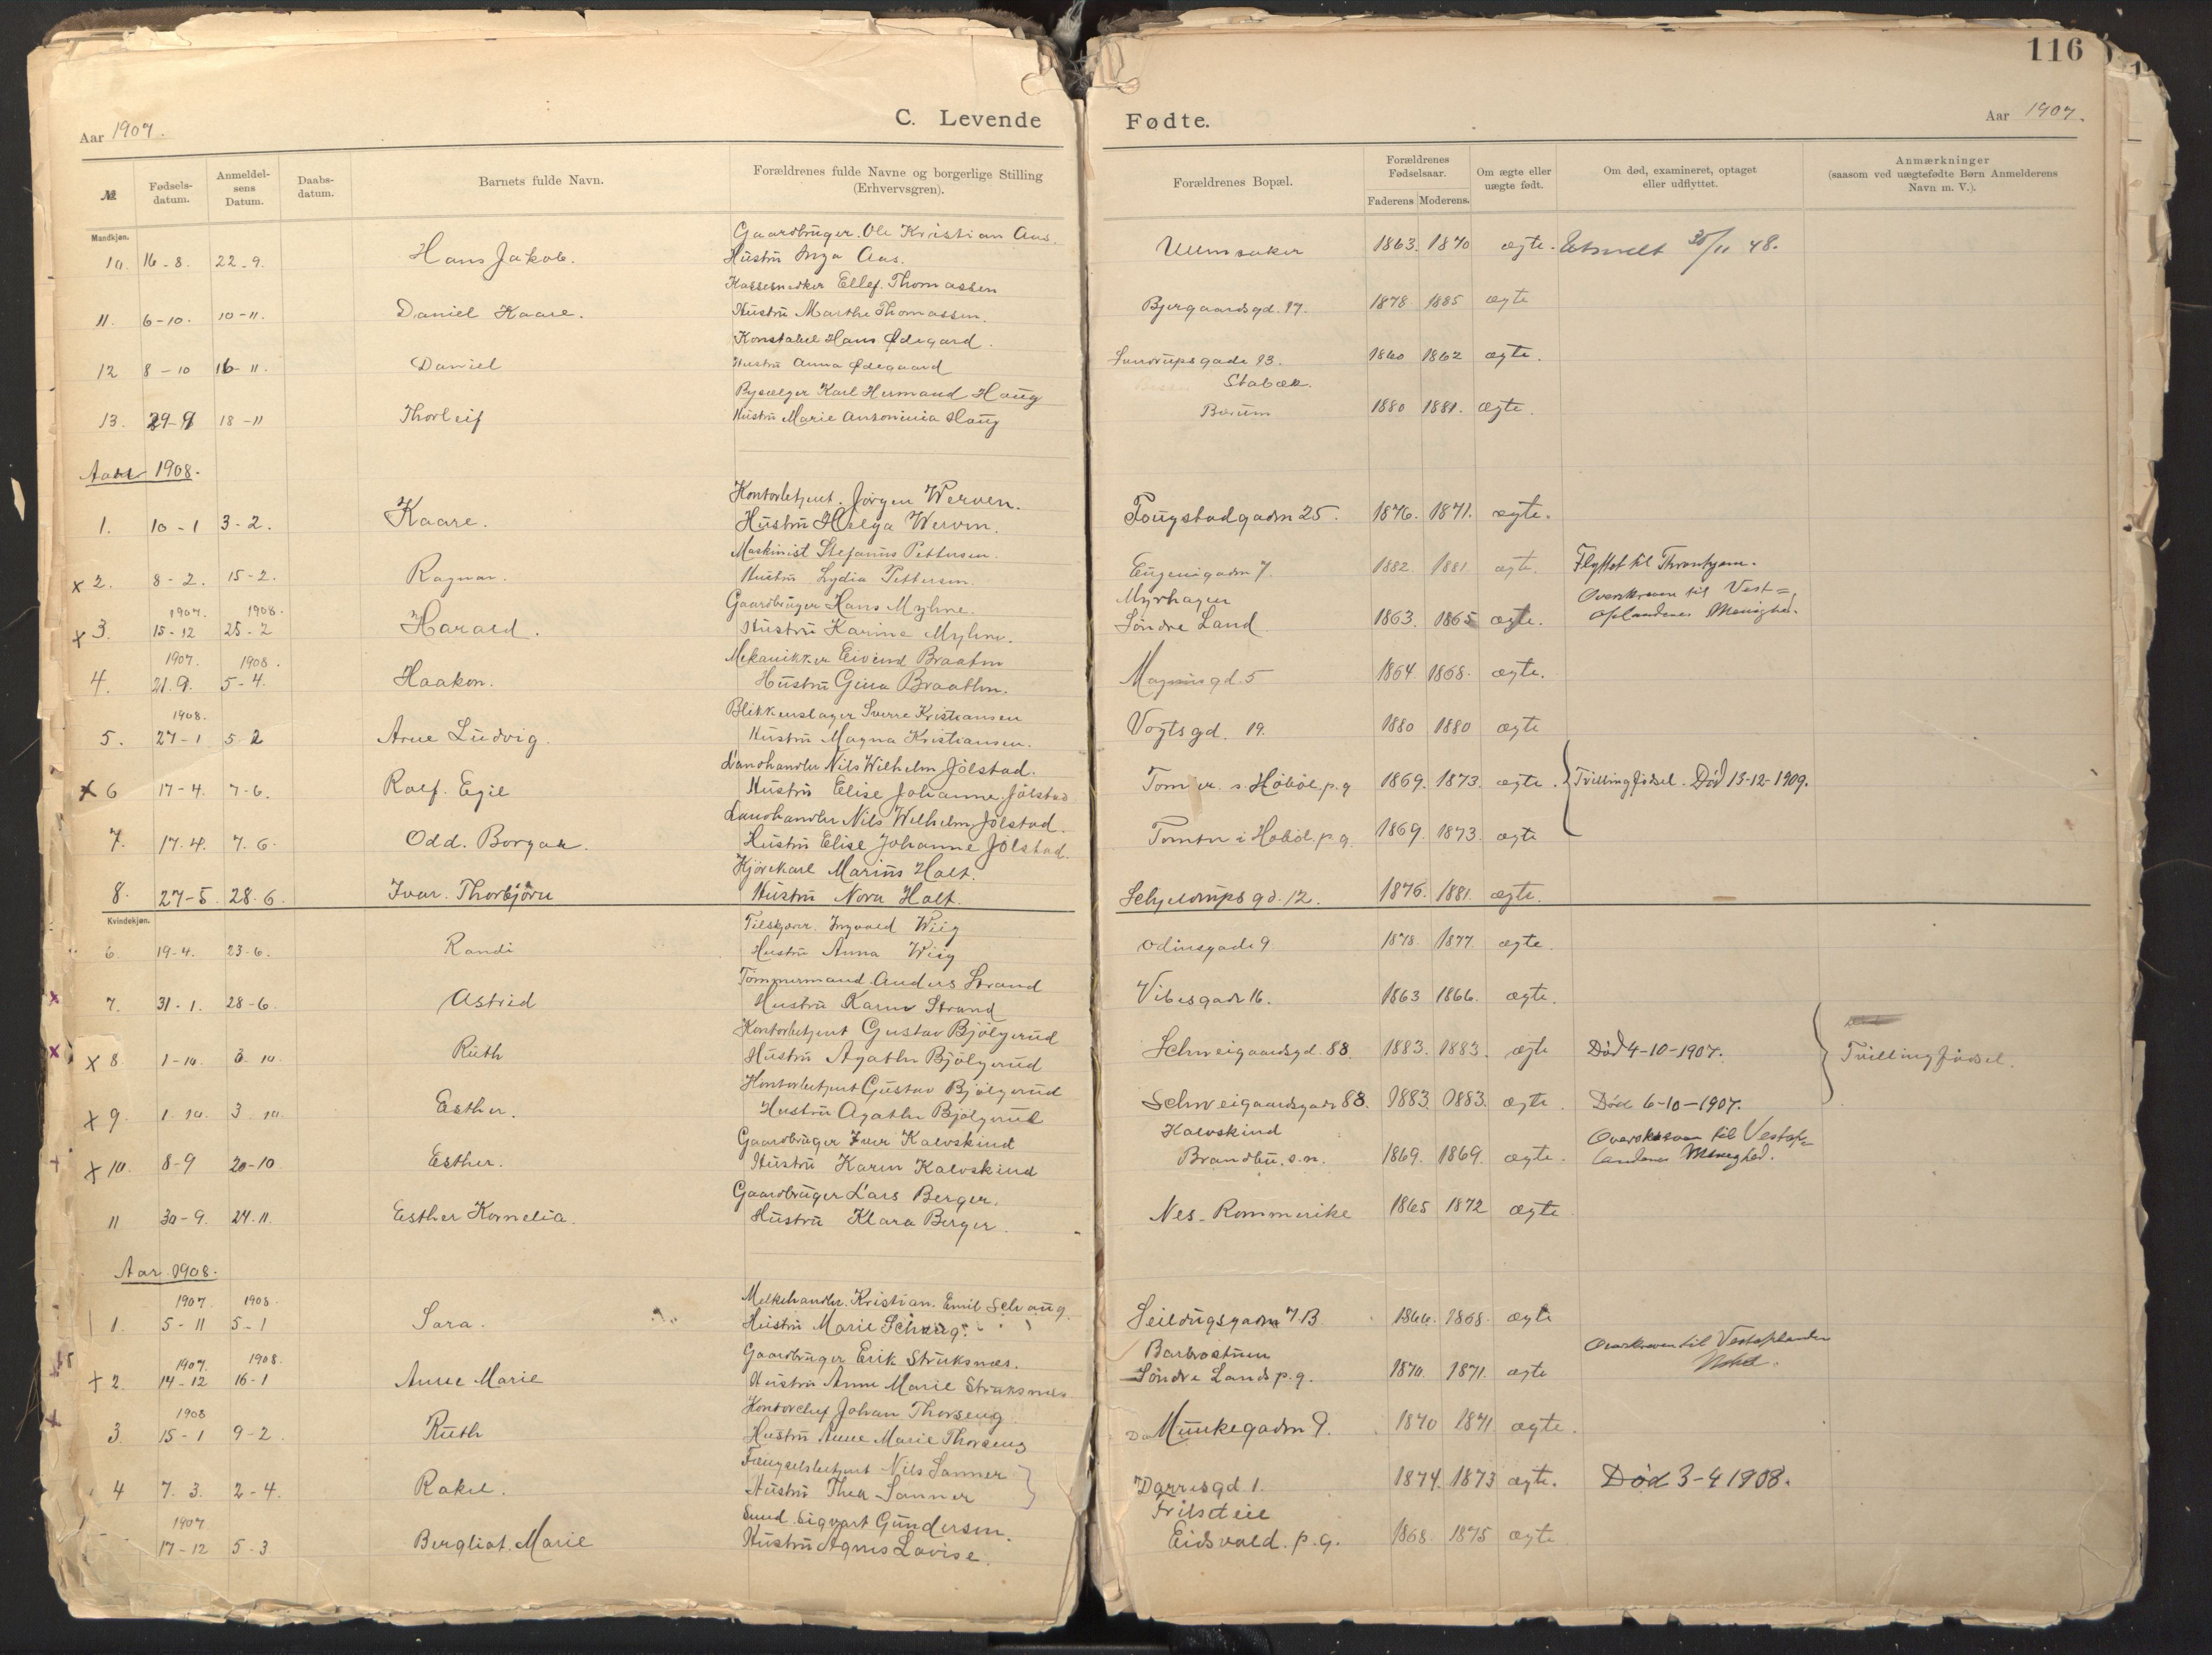 116
Aar 1907.
C. Levende Fødte.
Aar 1907.
№
Fødselsdatum.
Anmeldelsens Datum.
Daabsdatum.
Barnets fulde Navn.
Forældrenes fulde Navne og borgerlige Stilling (Erhvervsgren).
Forældrenes Bopæl.
Forældrenes Fødselsaar.
Faderens Moderens.
Om ægte eller uægte født.
Om død, examineret, optaget eller udflyttet.
Anmærkninger (saasom ved uægtefødte Børn Anmelderens Navn m. V.).
Mandkjøn.
Gaardbruger. Ole Kristian Aas.
10. 16-8. 22-9. Hans Jakob. Hustru Inga Aas. Ullensaker 1863. 1870 ægte. Utmeldt 30/11 48.
Kassesnedker Ellef. Thomassen
11. 6-10. 10-11. Daniel Kaare. Hustru Marthe Thomassen. Bjergaardsgd. 17. 1878. 1885 ægte
Konstabel Hans Ødegaard.
12 8-10 16-11. Daniel Hustru Anna Ødegaard Sandrupsgade 13. 1860 1862 ægte.
Bysælger Karl Hermand Haug Stabæk.
13. 29-9 18-11 Thorleif Hustru Marie Antoninia Haug Bærum 1880 1881. ægte.
Aar 1908.
Kontorbetjent. Jørgen Werven.
1. 10-1 3-2. Kaare. Hustru Helga Werven. Fougstadgaden 25. 1876. 1871. ægte.
Maskinist Stefanus Pettersen.
x 2. 8-2. 15-2. Ragnar. Hustru Lydia Pettersen. Eugenigaden 7. 1882. 1881 ægte. Flyttet til Thronhjem.
1907. 1908. Gaardbruger Hans Myhre. Myrhagen Overskreven til Vest=
x 3. 15-12 25-2 Harald. Hustru Karine Myhre. Søndre Land 1863. 1865 ægte. oplandenes Menighed.
1907. 1908. Mekanikker Eivind Braathen
4. 21.9. 5-4. Haakon. Hustru Gina Braathen. Magnusgd. 5 1864. 1868. ægte.
1908. Blikkenslager Sverre Kristiansen
5. 27-1 5-2 Arne Ludvig. Hustru Magna Kristiansen. Vogtsgd. 19. 1880 1880 ægte
Landhandler Nils Wilhelm Jølstad.
x 6 17-4. 7-6. Rolf. Egil Hustru Elise Johanne Jølstad Tomter i Høbøl p.g 1869. 1873. ægte. Tvillingfødsel. Død 13-12-1909.
Landhandler Nils Wilhelm Jølstad.
7. 17.4. 7.6. Odd. Borgar. Hustru Elise Johanne Jølstad. Tomter i Høbøl. p.g. 1869. 1873. ægte
Kjørekarl Marius Holt.
8. 27-5. 28.6. Ivar. Thorbjørn Hustru Nora Holt. Schjelderupsgd. 12. 1876. 1881. ægte.
Kvindekjøn.
Tilskjærer. Ingvald Wiig
6 19-4. 23-6. Randi Hustru Anna Wiig Odinsgade 9 1878 1877. ægte.
Tømmermand. Anders Strand
x 7. 31-1. 28-6. Astrid Hustru Karen Strand Vibesgade 16. 1863 1866. ægte.
Kontorbetjent Gustav Bjølgerud
x x 8. 1-10. 3. 10. Ruth Hustru Agathe Bjølgerud Schweigaardsgd. 88. 1883. 1883. ægte Død 4-10-1907. Tvillingfødsel.
Kontorbetjent Gustav Bjølgerud
x 9. 1 10. 3. 10. Esther. Hustru Agathe Bjølgerud Schweigaardsgade 88. 1883. 1883. ægte. Død 6-10-1907.
Gaardbruger Iver Kalvskind Kalvskind Overskreven til Vestop-
+ x 10. 8-9 20-10 Esther. Hustru Karen Kalvskind Brandbu. s.n. 1869. 1869. ægte. landenes Menighed.
Gaardbruger Lars Berger.
11 30-9. 24.11. Esther Kornelia. Hustru Klara Berger. Nes-Rommerike 1865 1872 ægte
Aar 1908.
1907. 1908 Melkehandler. Kristian. Emil Schaug.
1. 5-11 5-1 Sara. Hustru Marie Schaug. Seildugsgaden 7.B. 1866. 1868. ægte
1907. 1908. Gaardbruger Erik Struksnæs. Barbrostuen Overskreven til Vestoplandene
+ 2. 14-12 16-1 Anne Marie Hustru Anne Marie Struksnæs Søndre Lands p.g. 1870. 1871. ægte
1908 Kontorchef Johan Thorseng
3. 15-1 9-2. Ruth Hustru Anne Marie Thorseng Munkegaden 9. 1870 1871 ægte.
Fængselsbetjent Nils Sanner
4 7. 3. 2-4. Rakel. Hustru Thea Sanner Darresgd 1. 1874. 1873 ægte. Død 3-4 1908.
1907 Smed. Sigvart Gundersen.
17-12 5-3 Bergliot. Marie Hustru Agnes Lovise. Eidsvold. p.g. 1868. 1875 ægte